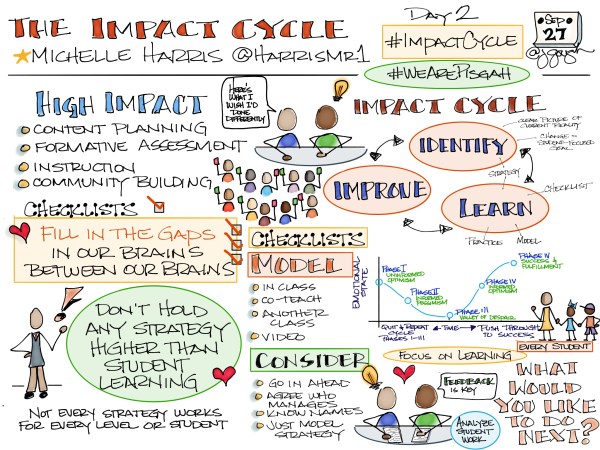 THE IMPACT CYCLE
MICHELLE HARRIS @HARRISMR1
DAY 2
#IMPACTCYCLE
#WEAREPISGAH
SEP
27
HIGH IMPACT
CONTENT PLANNING
FORMATIVE ASSESSMENT
INSTRUCTION
COMMUNITY BUILDING
HERE'S
WHAT I
WISH I'D
DONE
DIFFERENTLY
IMPACT CYCLE
IDENTIFY
CLEAR PICTURE OF
CURRENT REALITY
CHANGE =
STUDENT-FOCUSED
GOAL
STRATEGY
LEARN
CHECKLIST
PRACTICE
MODEL
IMPROVE
CHECKLISTS
FILL IN THE GAPS
IN OUR BRAINS
BETWEEN OUR BRAINS
DON'T HOLD
ANY STRATEGY
HIGHER THAN
STUDENT
LEARNING
NOT EVERY STRATEGY WORKS
FOR EVERY LEVEL OR STUDENT
CHECKLISTS
MODEL
IN CLASS
CO-TEACH
ANOTHER
CLASS
VIDEO
CONSIDER
GO IN AHEAD
AGREE WHO
MANAGES
KNOW NAMES
JUST MODEL
STRATEGY
EMOTIONAL
STATE
PHASE I
UNINFORMED
OPTIMISM
PHASE II
INFORMED
PESSIMISM
PHASE III
VALLEY OF DESPAIR
PHASE IV
INFORMED
OPTIMISM
PHASE V
SUCCESS &
FULFILLMENT
QUIT & REPEAT
CYCLE
PHASES I-III
TIME
PUSH THROUGH
TO SUCCESS
EVERY STUDENT
FOCUS ON LEARNING
FEEDBACK
IS KEY
ANALYZE
STUDENT
WORK
WHAT
WOULD
YOU LIKE
TO DO
NEXT?